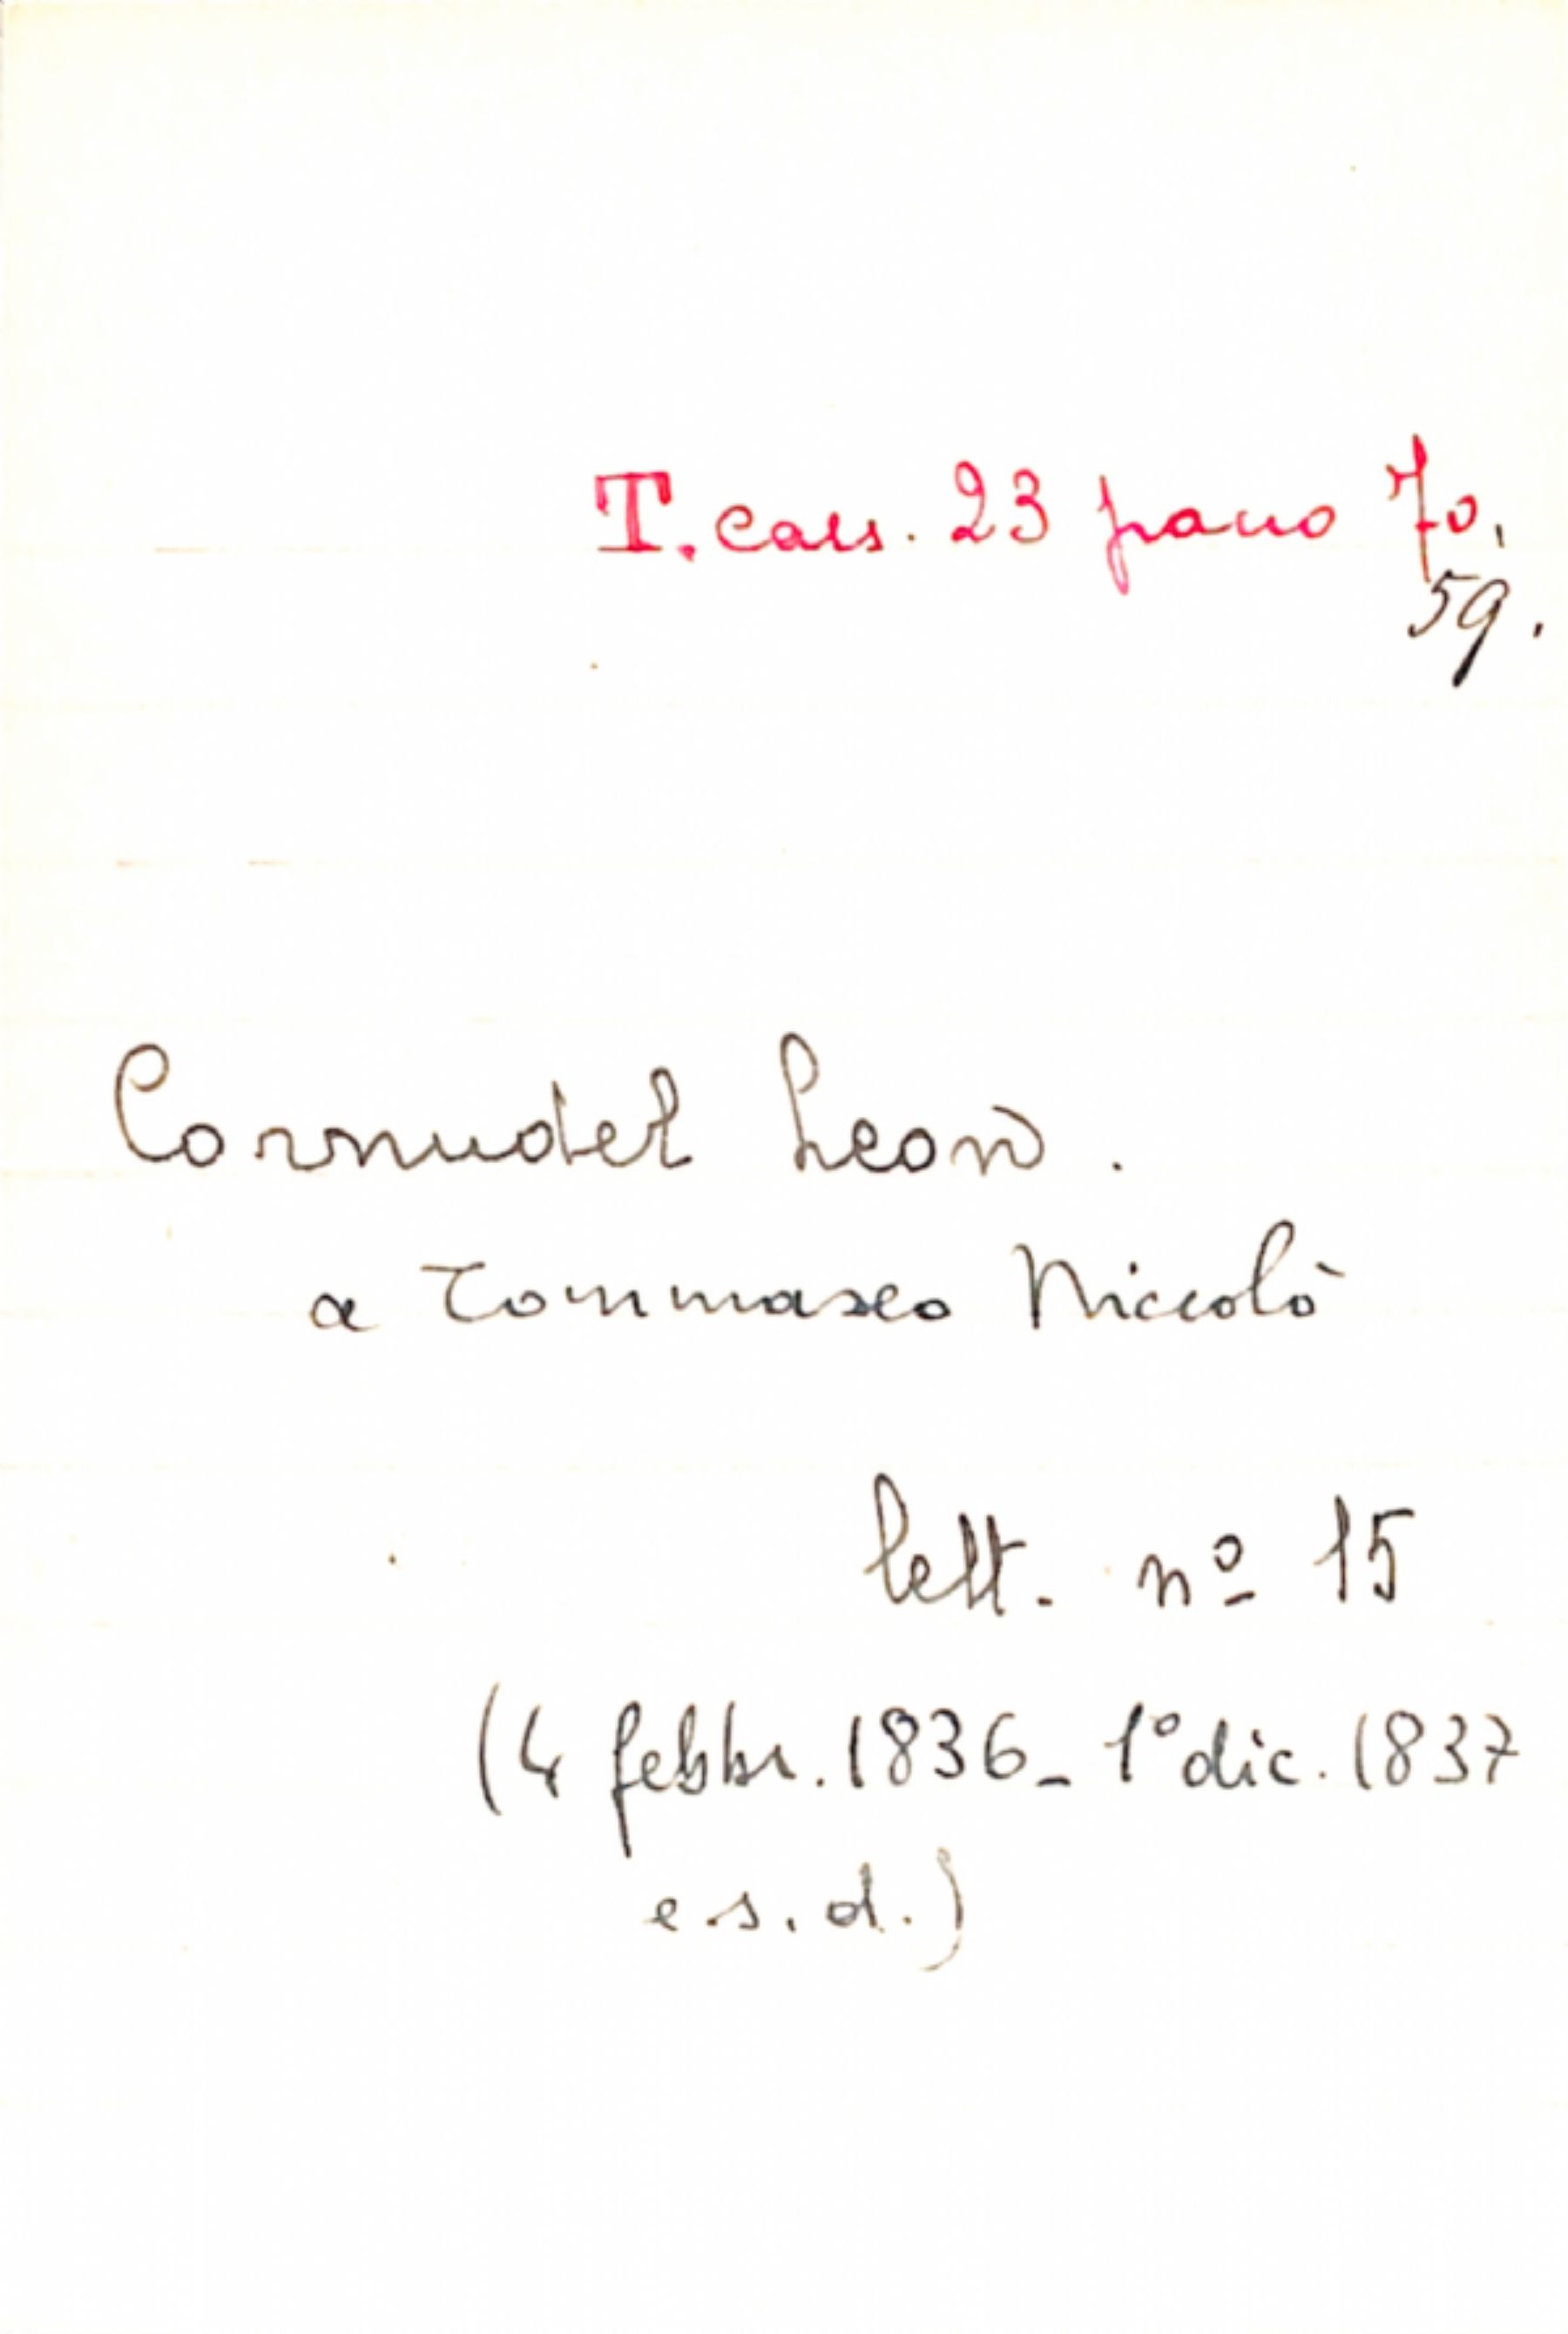 T. cass. 23 panno 70,
59.
Cornudet Leon.
a Tommaseo Niccolò
lett. nº 15
(4 febbr. 1836 - 1° dic. 1837
e s. d.)